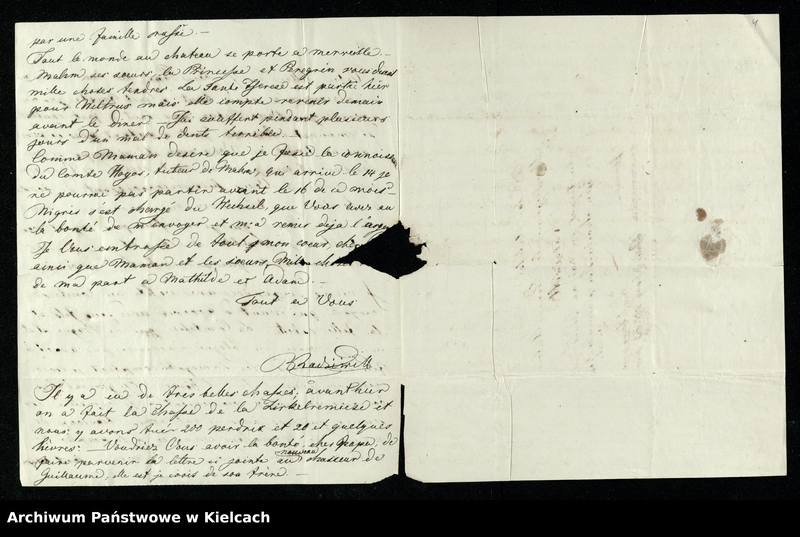 par une famille russe. —
Tout le monde au chateau se porte a merveille. —
Mahm ses soeurs, la Princesse et Peregrin vous disent
mille choses tendres. La Tante Therese est partie hier
pour Weltrus mais elle compte revenir demain
avant le diner. — J'ai souffert pendant plusieurs
jours d'un mal de dents terrible. —
Comme Maman desire que je fasse la connoissance
du Comte Hoyos tuteur de Mahm, qui arrive le 14 je
ne pourrai pas partir avant le 16 de ce mois. —
Nigris s'est chargé du Wechsel que Vous avez eu
la bonté de m'envoyer et m'a remis deja l'
Je Vous embrasse de tout mon coeur
ainsi que Maman et les soeurs. Mille
de ma part a Mathilde et Adam. —
Tout a Vous
Radziwill
Il y a eu de tres belles chasses, avanthier
on a fait la chasse de la et
nous y avons tué 200 perdrix et 20 et quelques
lièvres. — Voudriez Vous avoir la bonté, cher Papa, de
faire parvenir la lettre ci jointe au nouveau chasseur de
Guillaume, elle est je crois de son frère. —
4
Archiwum Państwowe w Kielcach